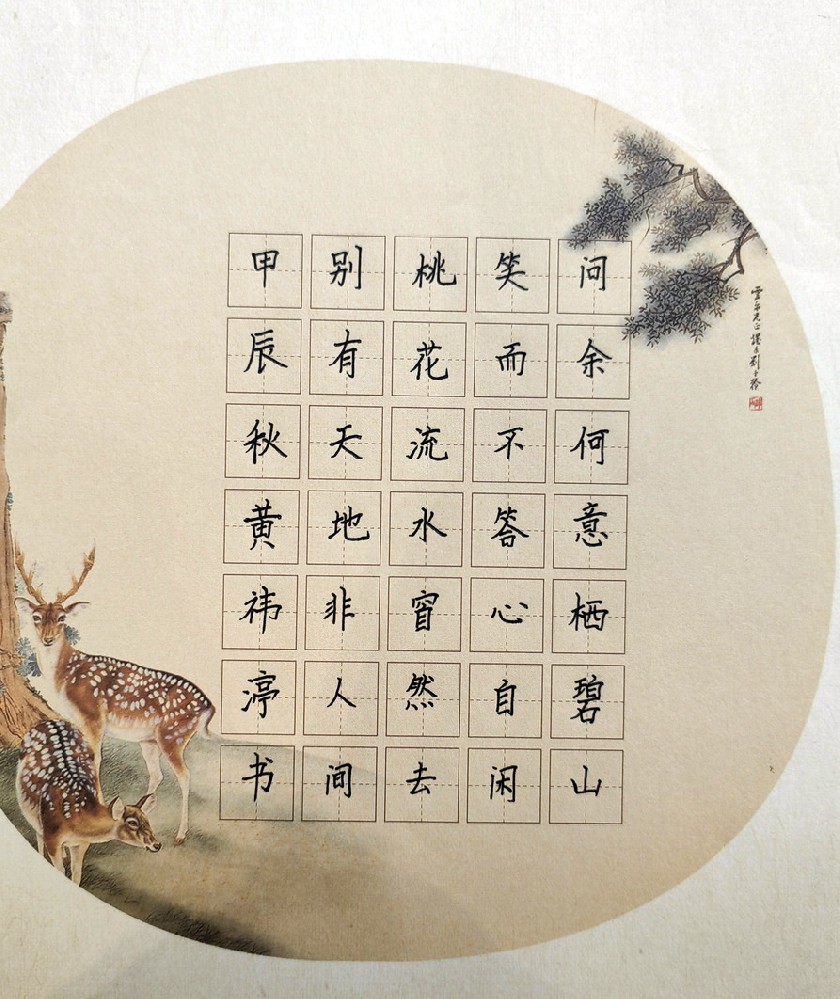 问余何意栖碧山
笑而不答心自闲
桃花流水窅然去
别有天地非人间
甲辰秋黄祎渟书